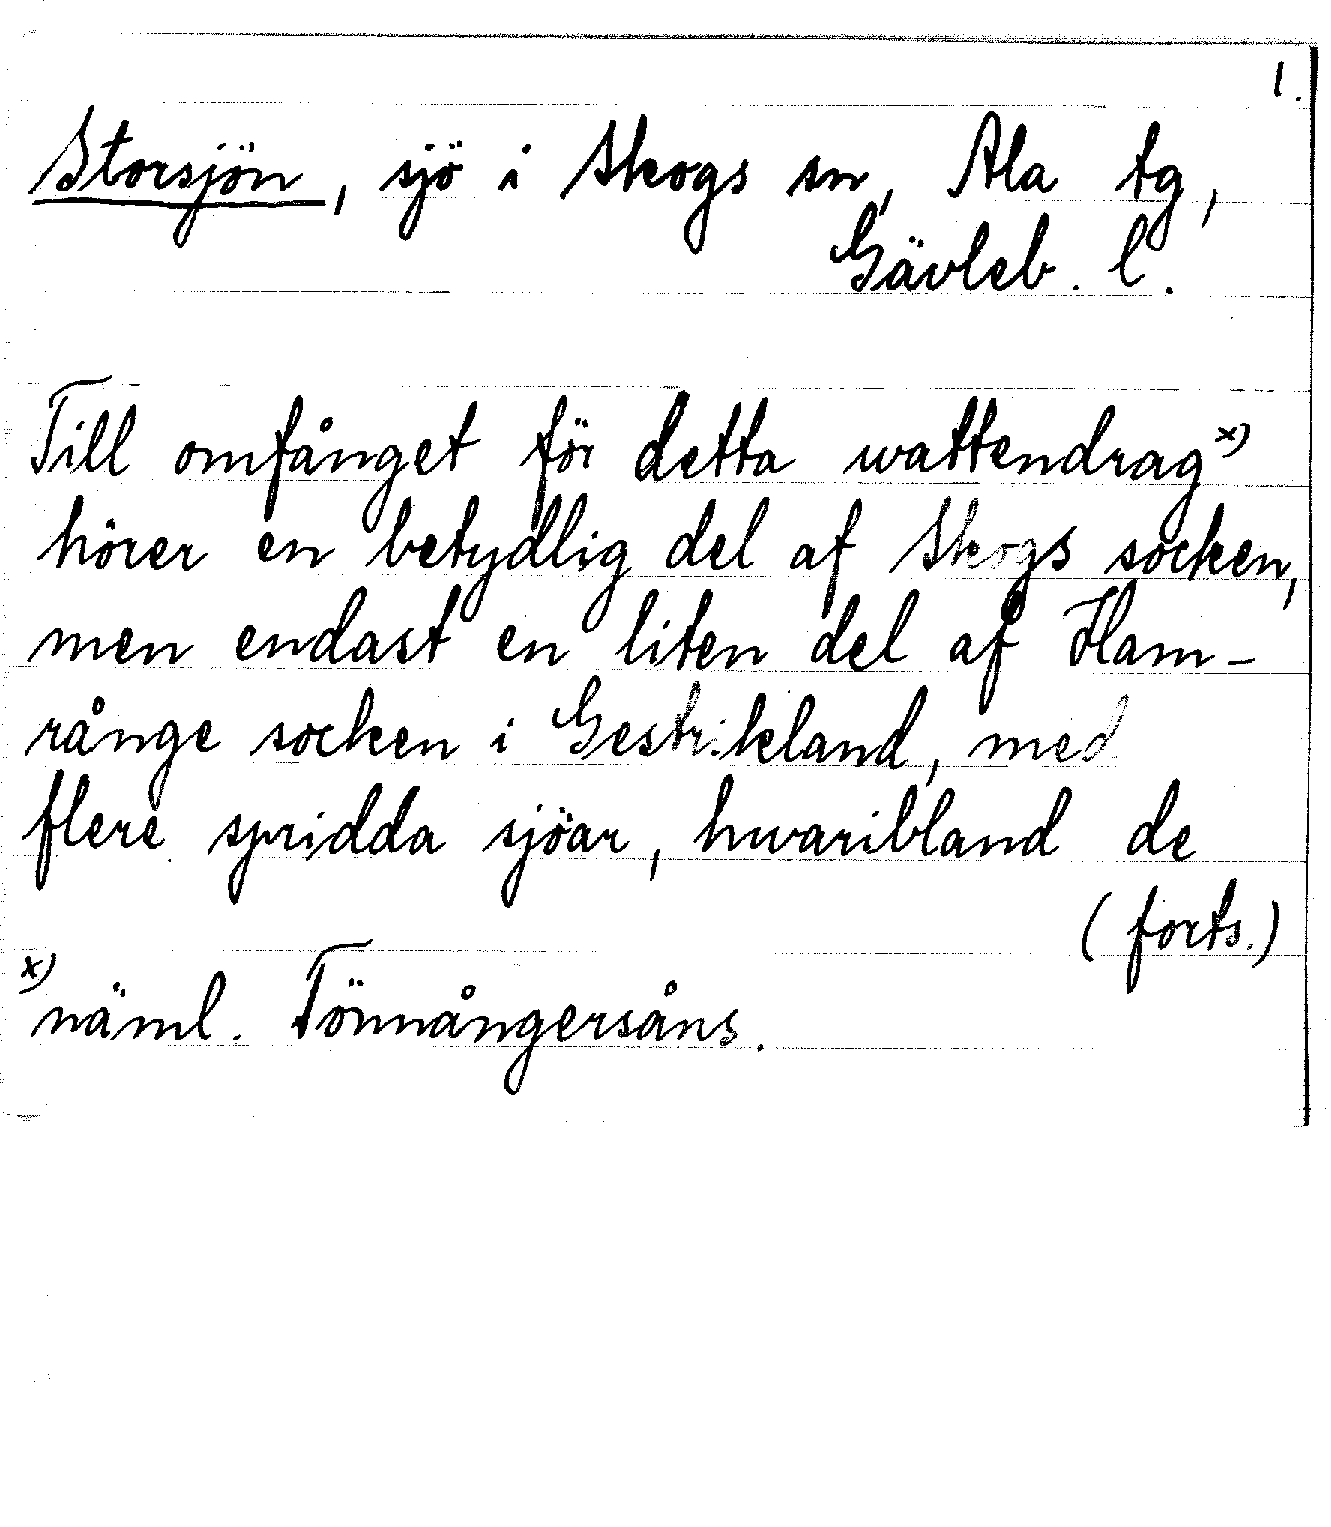 1.
Storsjön, sjö i Skogs sn, Ala tg,
Gävleb. l.
Till omfånget för detta wattendrag x)
hörer en betydlig del af Skogs socken,
men endast en liten del af Ham-
rånge socken i Gestrikland, med
flere spridda sjöar, hwaribland de
(forts.)
x) näml. Tönnångersåns.